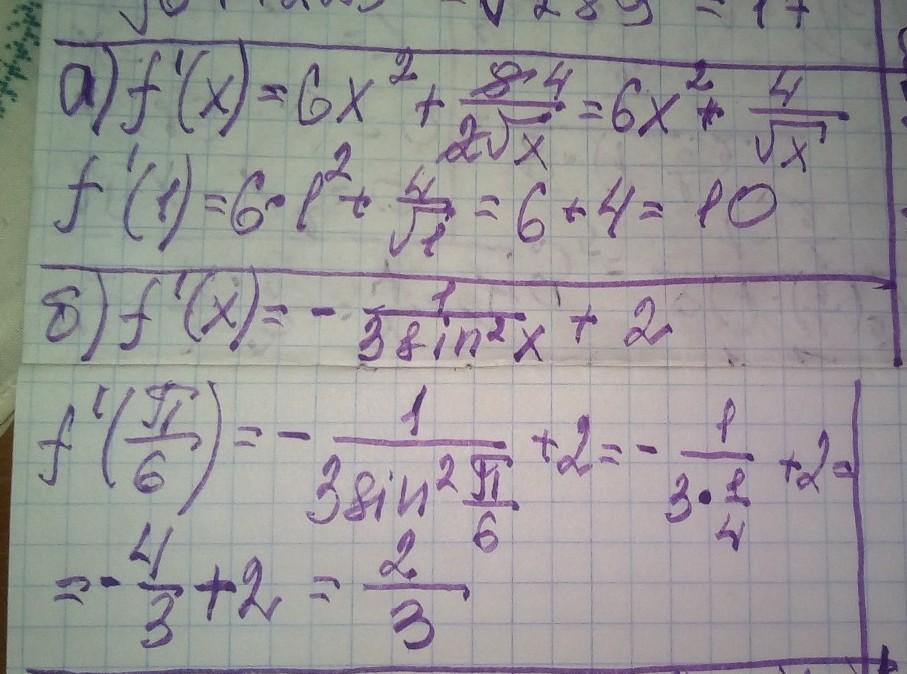 = √289 = 17
а) f'(x) = 6x² + 8 4/2√x = 6x² + 4/√x
f'(1) = 6·1² + 4/√1 = 6+4 = 10
б) f'(x) = - 1/3sin²x + 2
f'(π/6) = - 1/3sin²π/6 + 2 = - 1/3·1/4 + 2 =
= - 4/3 + 2 = 2/3